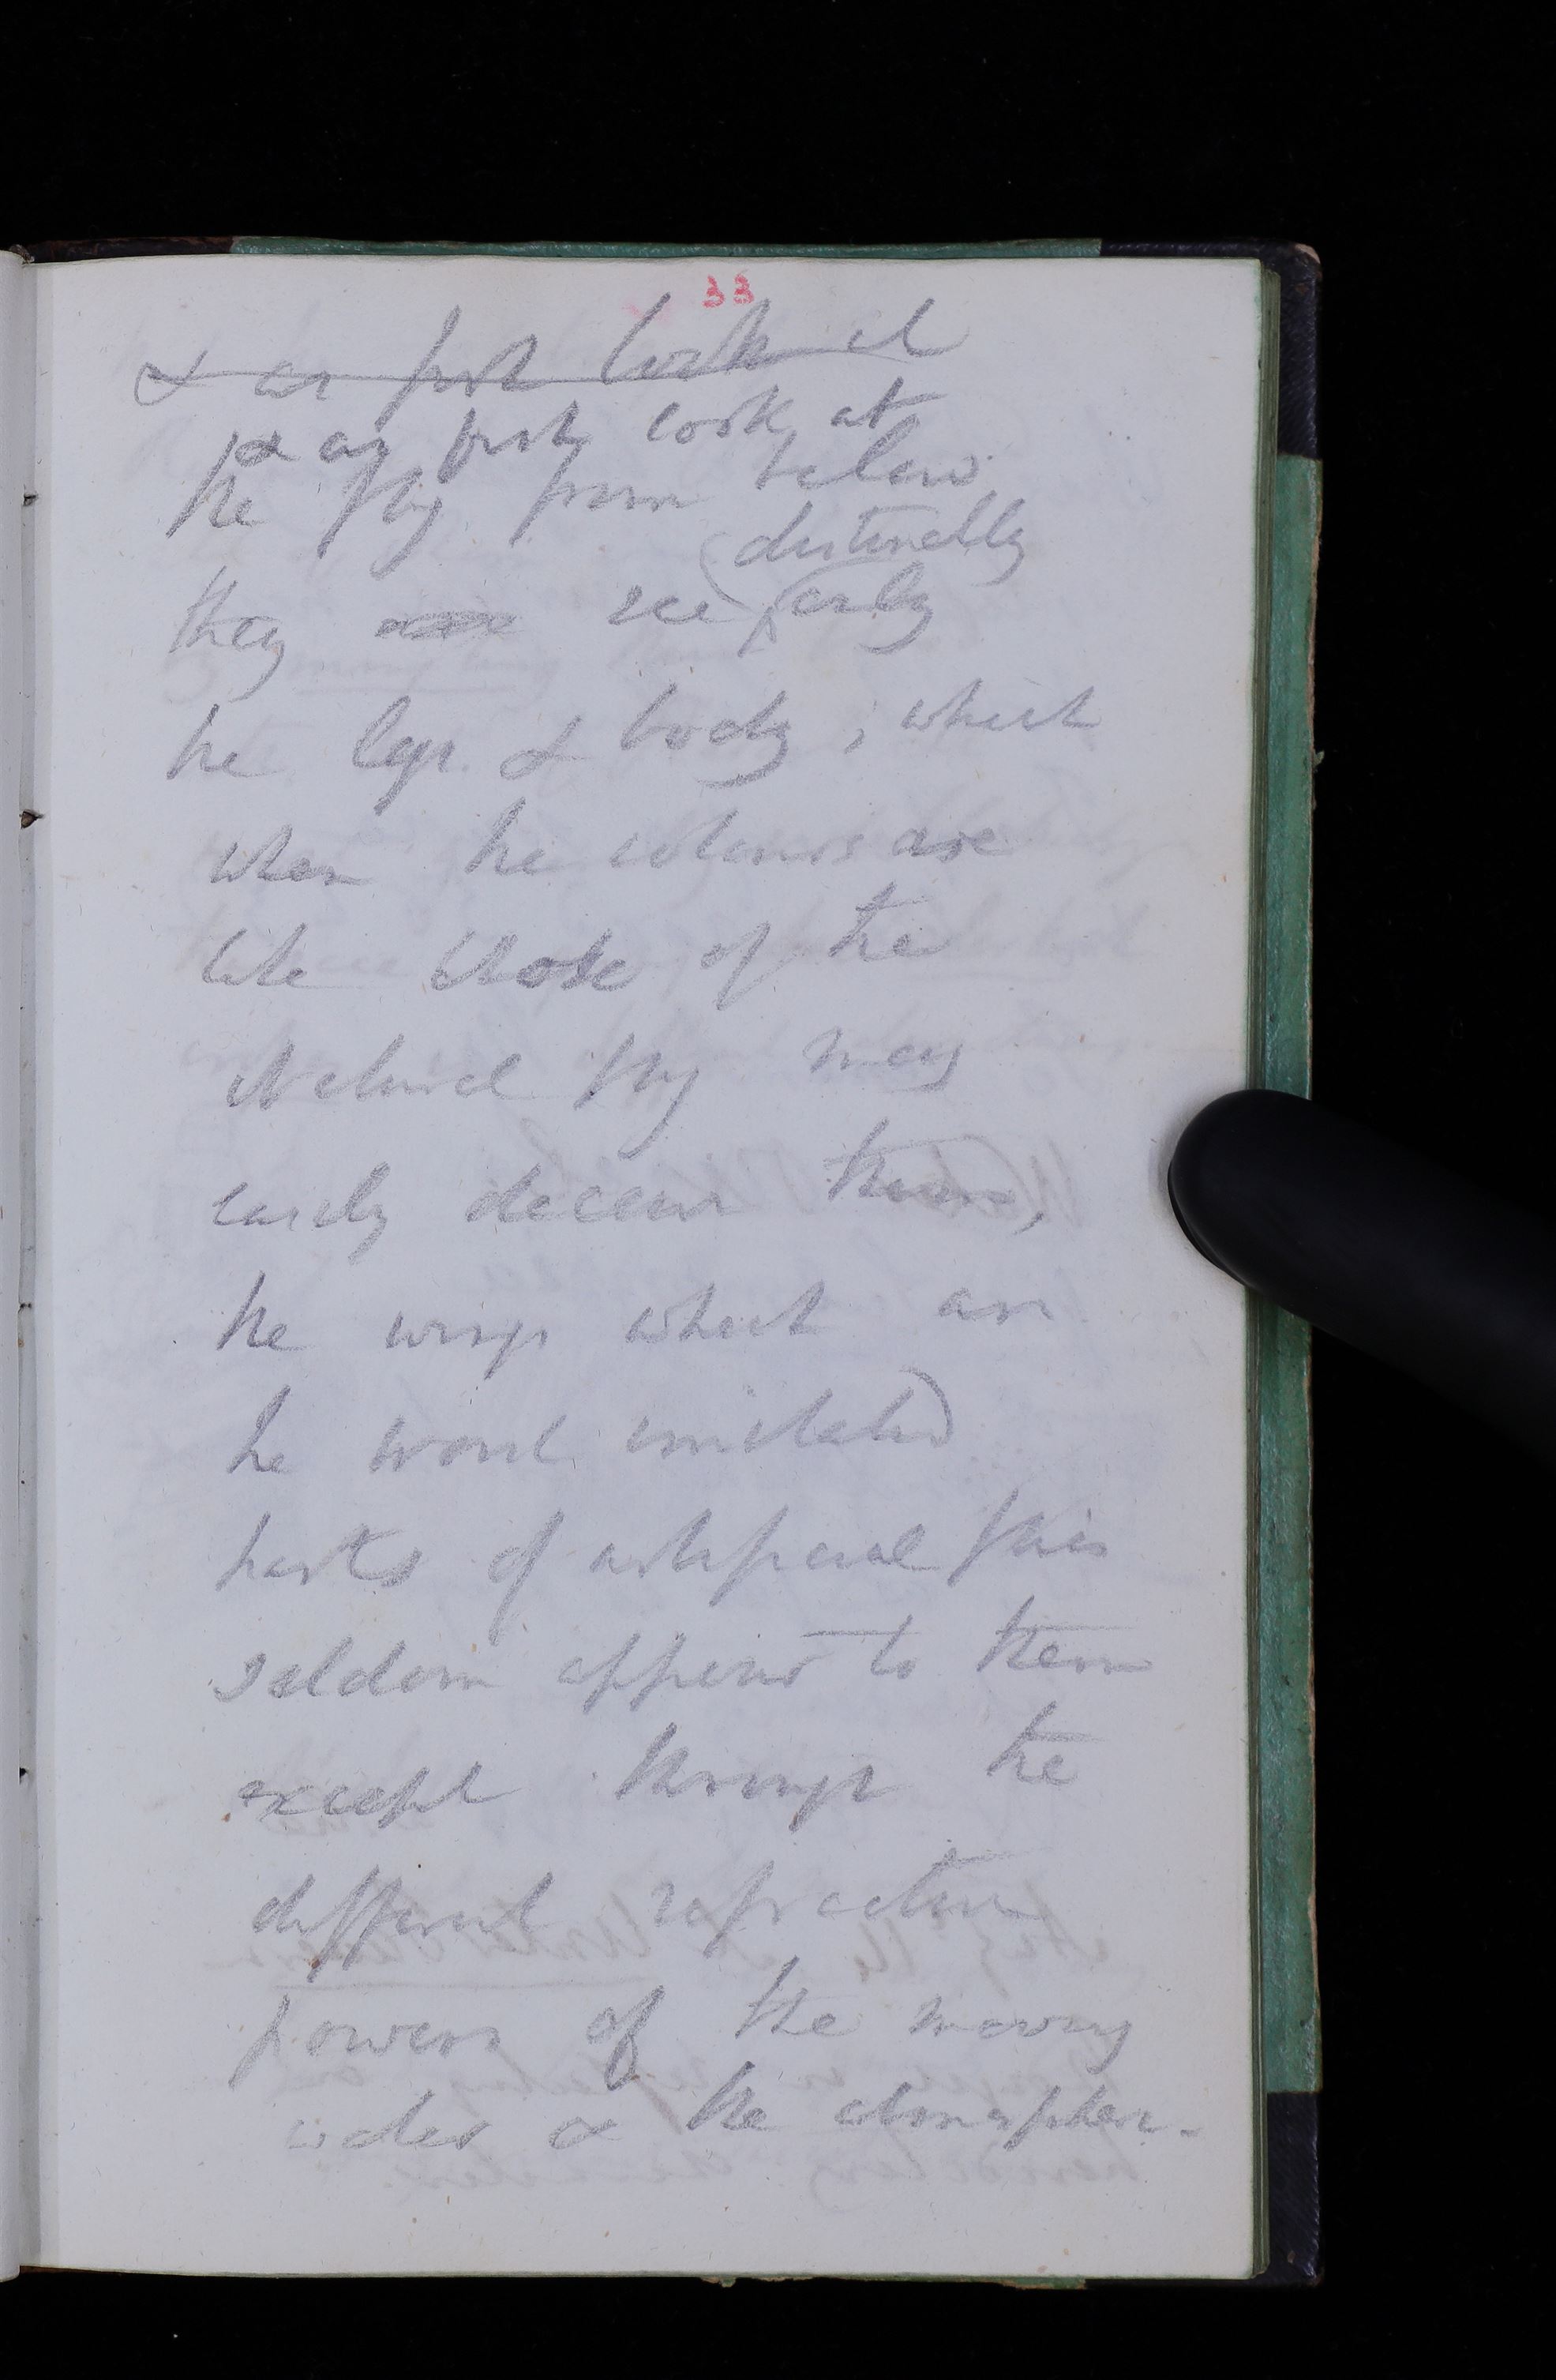 33
& as fish look at
& as fish look at
the fly from below
distinctly
they see only
the legs & body; which
when the colours are
like those of the
Natural fly may
easily deceive them,
the wings which are
the worst imitated
parts of artificial flies
seldom appear to them
except through the
different refractive
powers of the moving
water & the atmosphere.